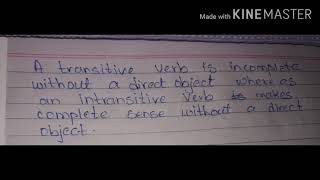 Made with KINEMASTER
A transitive verb is incomplete
without a direct object where as
an intransitive verb makes
complete sense without a direct
object.